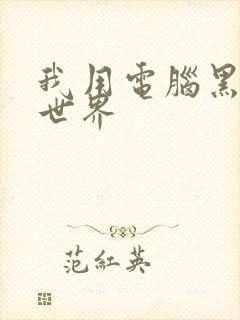 我用電腦黑
世界
范紅英